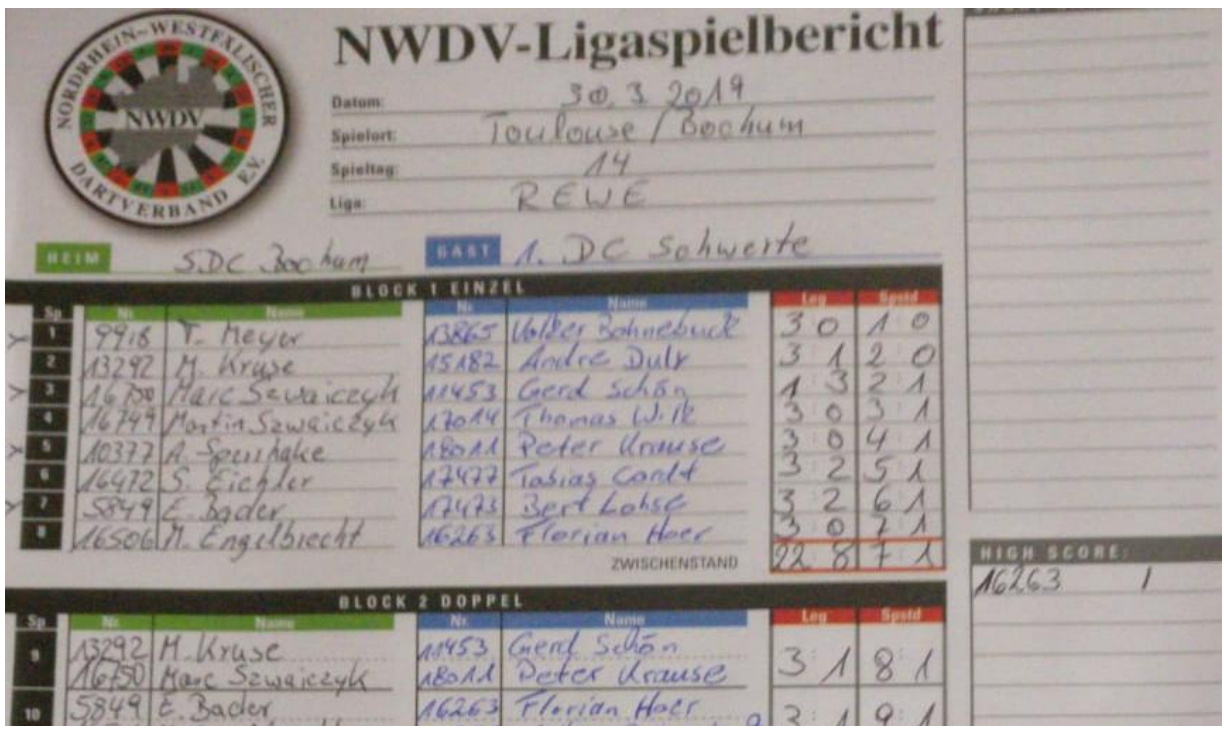 NORDRHEIN-WESTFÄLISCHER
NWDV
DARTVERBAND E.V.
NWDV-Ligaspielbericht
Datum: 30.3.2019
Spielort: Toulouse / Bochum
Spieltag: 14
Liga: REWE
HEIM SDC Bochum GAST 1. DC Schwerte
BLOCK 1 EINZEL
Sp Nr. Name Nr. Name Leg Spstd
1 9918 T. Meyer 13865 Volker Bohnebuck 3 0 1 0
2 13292 M. Kruse 15182 Andre Duly 3 1 2 0
3 16750 Marc Szwaiczyk 11453 Gerd Schön 1 3 2 1
4 16749 Martin Szwaiczyk 17014 Thomas Wilk 3 0 3 1
5 10377 A. 18011 Peter Krause 3 0 4 1
6 16472 S. Eichler 17477 Tobias 3 2 5 1
7 5849 E. Bader 17473 Bert Lohse 3 2 6 1
8 16506 M. Engelbrecht 16263 Florian Hoer 3 0 7 1
ZWISCHENSTAND 22 8 7 1
HIGH SCORE:
16263 1
BLOCK 2 DOPPEL
Sp Nr. Name Nr. Name Leg Spstd
9 13292 M. Kruse 11453 Gerd Schön 3:1 8:1
16750 Marc Szwaiczyk 18011 Peter Krause
10 5849 E. Bader 16263 Florian Hoer 3:1 9:1